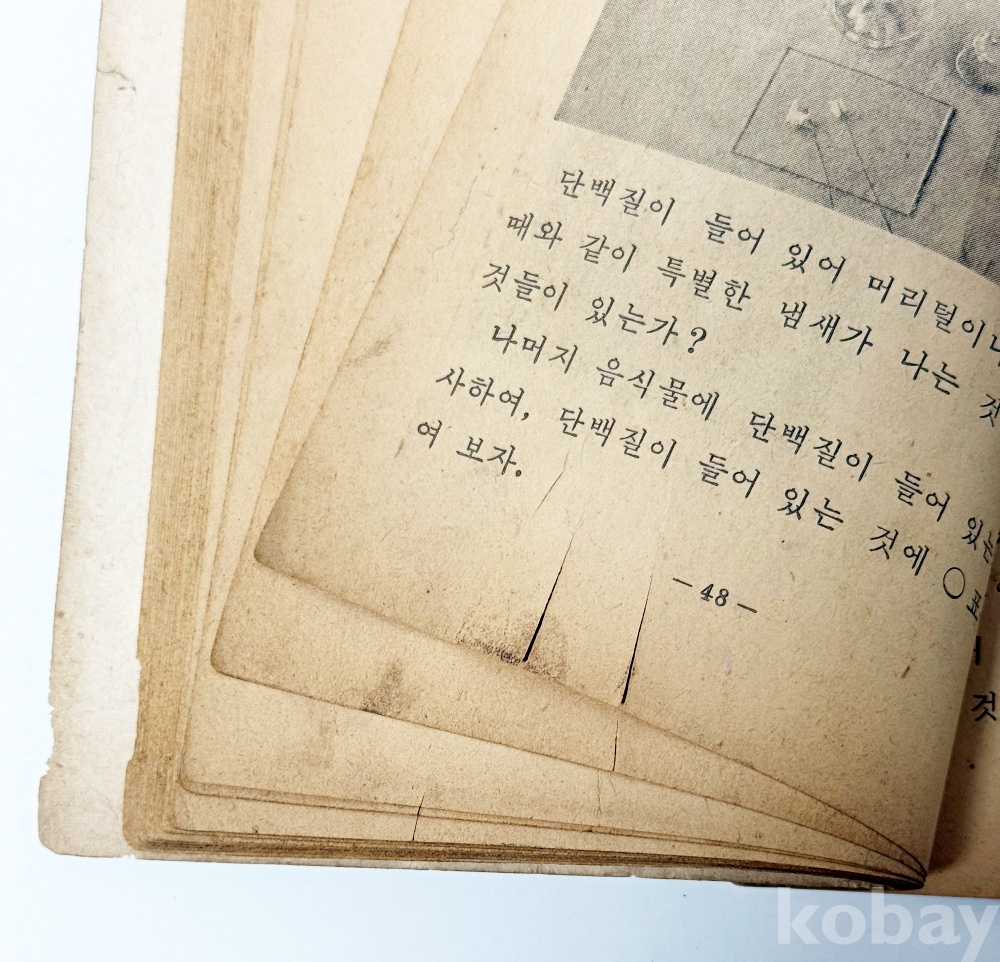 단백질이 들어 있어 머리털이나
때와 같이 특별한 냄새가 나는 것
것들이 있는가?
나머지 음식물에 단백질이 들어 있는
사하여, 단백질이 들어 있는 것에 ○표
여 보자.
— 48 —
것
kobay